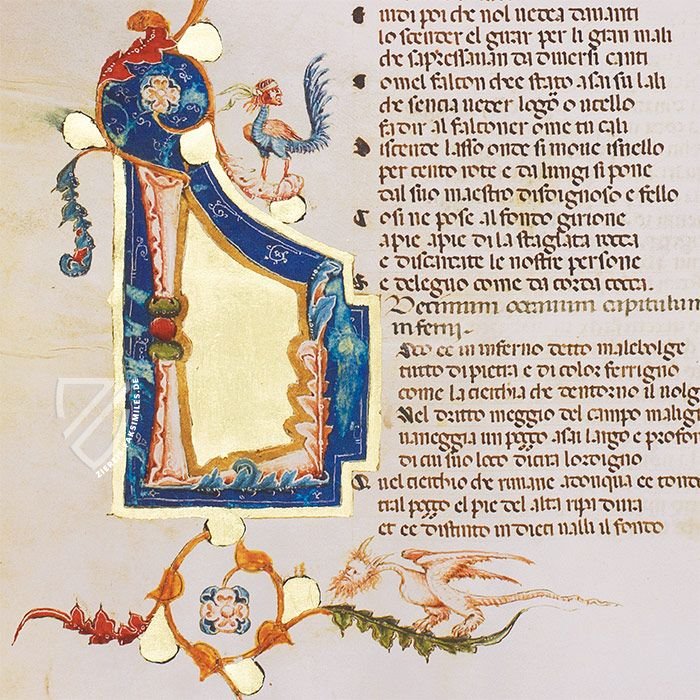 E uidi poi che nol uedea dauanti
lo scender el girar per li gran mali
che sapressauan da diuersi canti
Come l falcon chee stato assai su lali
che sencia ueder logoro o ucello
fa dir al falconer ome tu cali
Discende lasso onde si moue isnello
per cento rote e da lungi si pone
dal suo maestro disdignoso e fello
Cosi ne pose al fondo girione
a pie a pie di la stagliata rocca
e discarcate le nostre persone
Se deleguo come da corda cocca.
Decimum octauum capitulum
inferni.
Loco ee in inferno detto malebolge
tutto di pietra e di color ferrigno
come la cierchia che dentorno il uolg
Nel dritto meggio del campo malig
uaneggia un poço assai largo e profon
di cui suo loco dicira lordigno
Quel cierchio che rimane adonqua ee tonto
tral poço el pie del alta ripa dura
et ee distinto in dieci ualli il fondo
ZIEREIS FAKSIMILES.DE